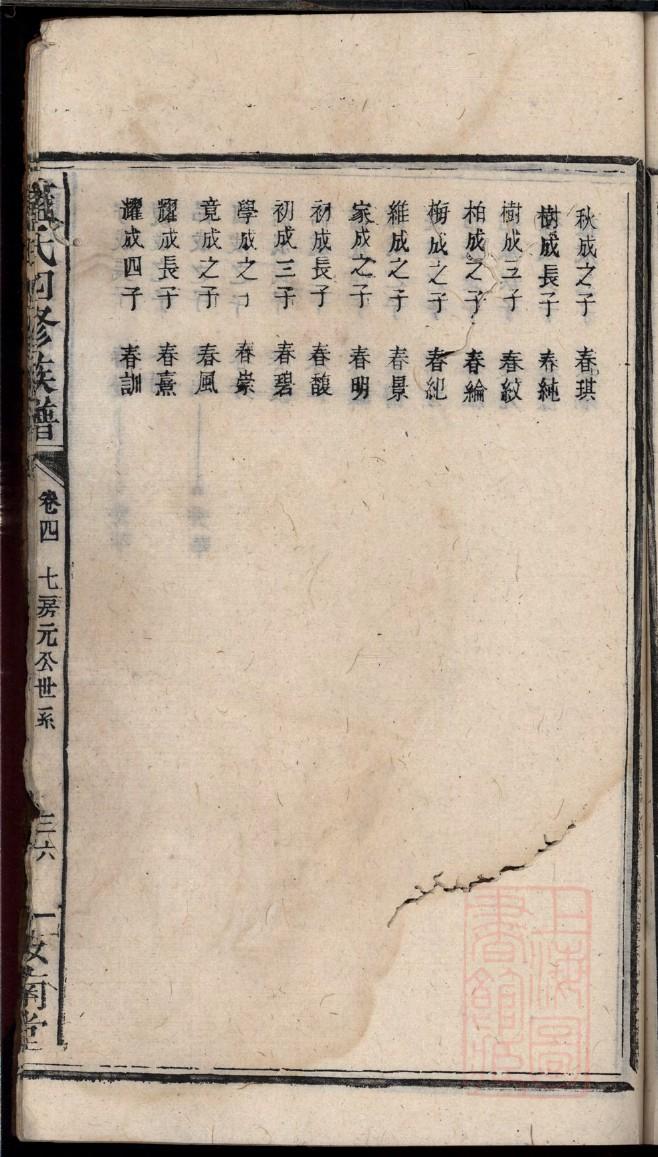 秋成之子 春琪
樹成長子 春純
樹成三子 春紋
柏成之子 春綸
梅成之子 春紀
維成之子 春景
家成之子 春明
初成長子 春馥
初成三子 春碧
學成之子 春崇
竟成之子 春風
耀成長子 春熹
耀成四子 春訓
氏四修族譜
卷四 七房元公世系
三六
南堂
上海圖書館藏